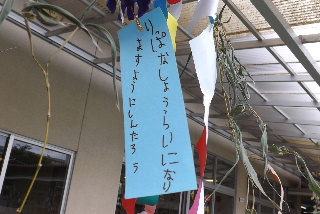 りっぱなしょうらいになり
ますようにしんたろう